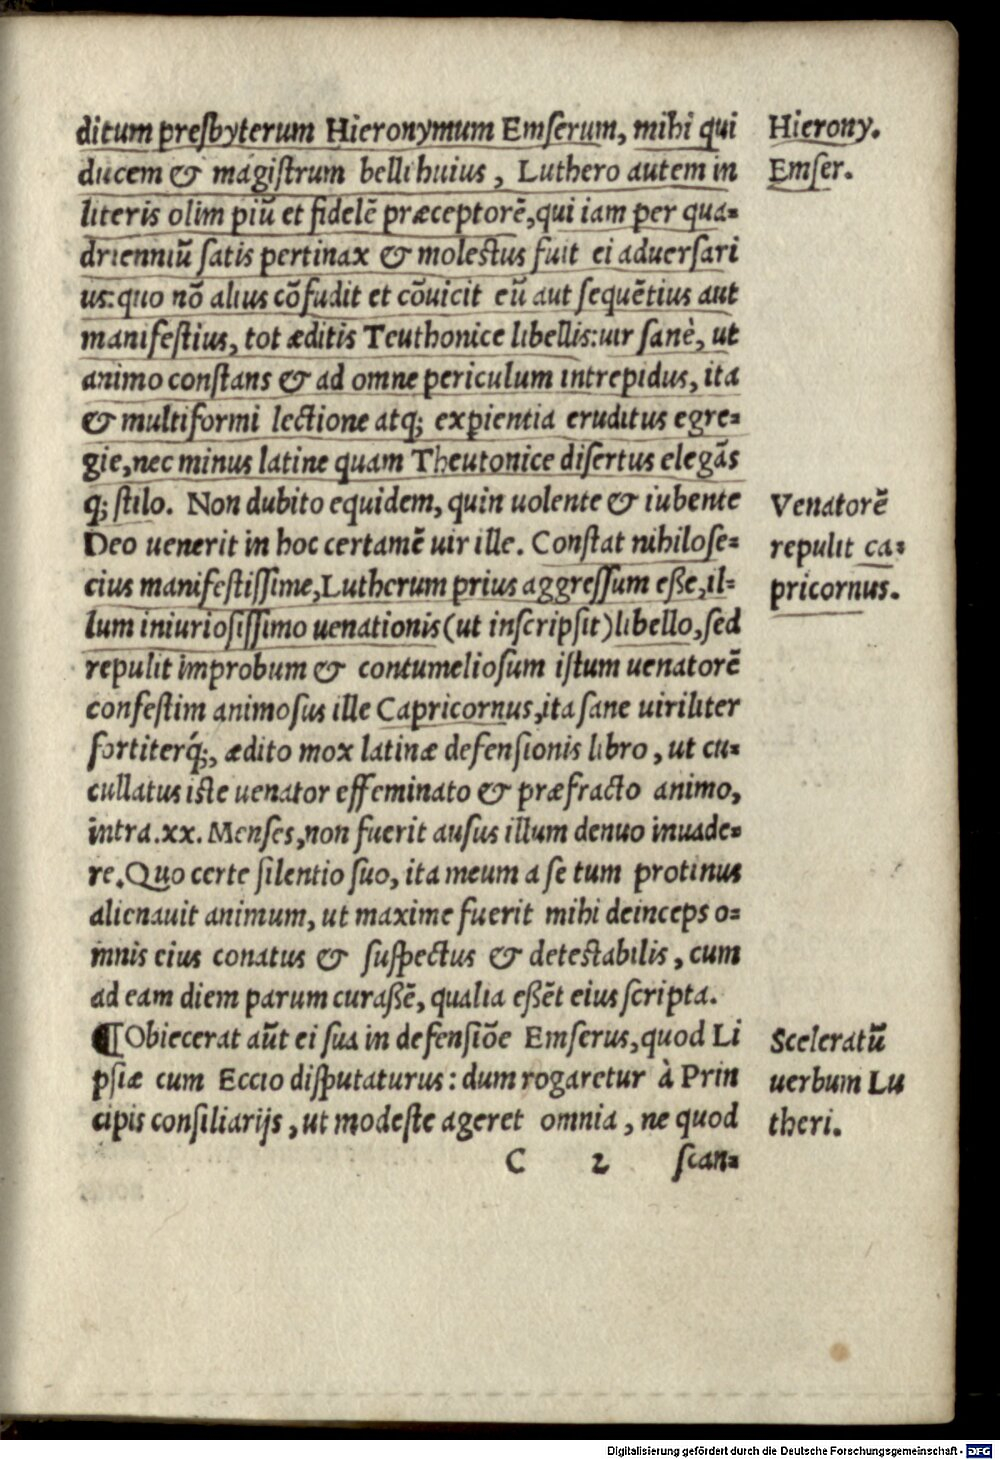 ditum presbyterum Hieronymum Emserum, mihi qui
ducem & magistrum belli huius, Luthero autem in
literis olim piū et fidelē præceptorē, qui iam per qua=
drienniū satis pertinax & molestus fuit ei aduersari
us: quo nō alius cōfudit et cōuicit eū aut sequētius aut
manifestius, tot æditis Teuthonice libellis: uir sanè, ut
animo constans & ad omne periculum intrepidus, ita
& multiformi lectione atq; expientia eruditus egre=
gie, nec minus latine quam Theutonice disertus elegās
q; stilo. Non dubito equidem, quin uolente & iubente
Deo uenerit in hoc certamē uir ille. Constat nihilose=
cius manifestissime, Lutherum prius aggressum eße, il=
lum iniuriosissimo uenationis (ut inscripsit) libello, sed
repulit improbum & contumeliosum istum uenatorē
confestim animosus ille Capricornus, ita sane uiriliter
fortiterq́;, ædito mox latinæ defensionis libro, ut cu=
cullatus iste uenator effeminato & præfracto animo,
intra .xx. Menses, non fuerit ausus illum denuo inuade=
re. Quo certe silentio suo, ita meum a se tum protinus
alienauit animum, ut maxime fuerit mihi deinceps o=
mnis eius conatus & suspectus & detestabilis, cum
ad eam diem parum curaßē, qualia eßēt eius scripta.
¶ Obiecerat aūt ei sua in defensiōe Emserus, quod Li
psiæ cum Eccio disputaturus: dum rogaretur à Prin
cipis consiliarijs, ut modeste ageret omnia, ne quod
C 2 scan=
Hierony.
Emser.
Venatorē
repulit ca=
pricornus.
Sceleratū
uerbum Lu
theri.
Digitalisierung gefördert durch die Deutsche Forschungsgemeinschaft - DFG